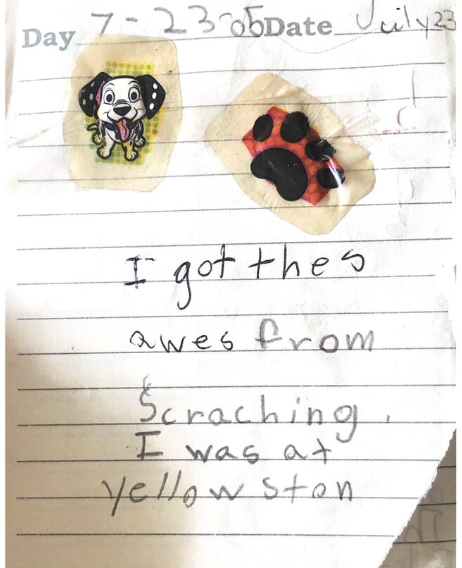 Day 7-23-05 Date July 23
I got thes
awes from
Scraching.
I was at
yellowston